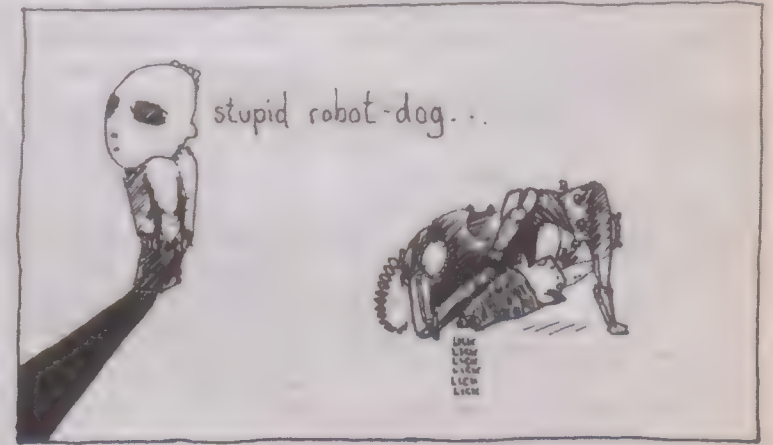 stupid robot-dog...
LICK
LICK
LICK
LICK
LICK
LICK